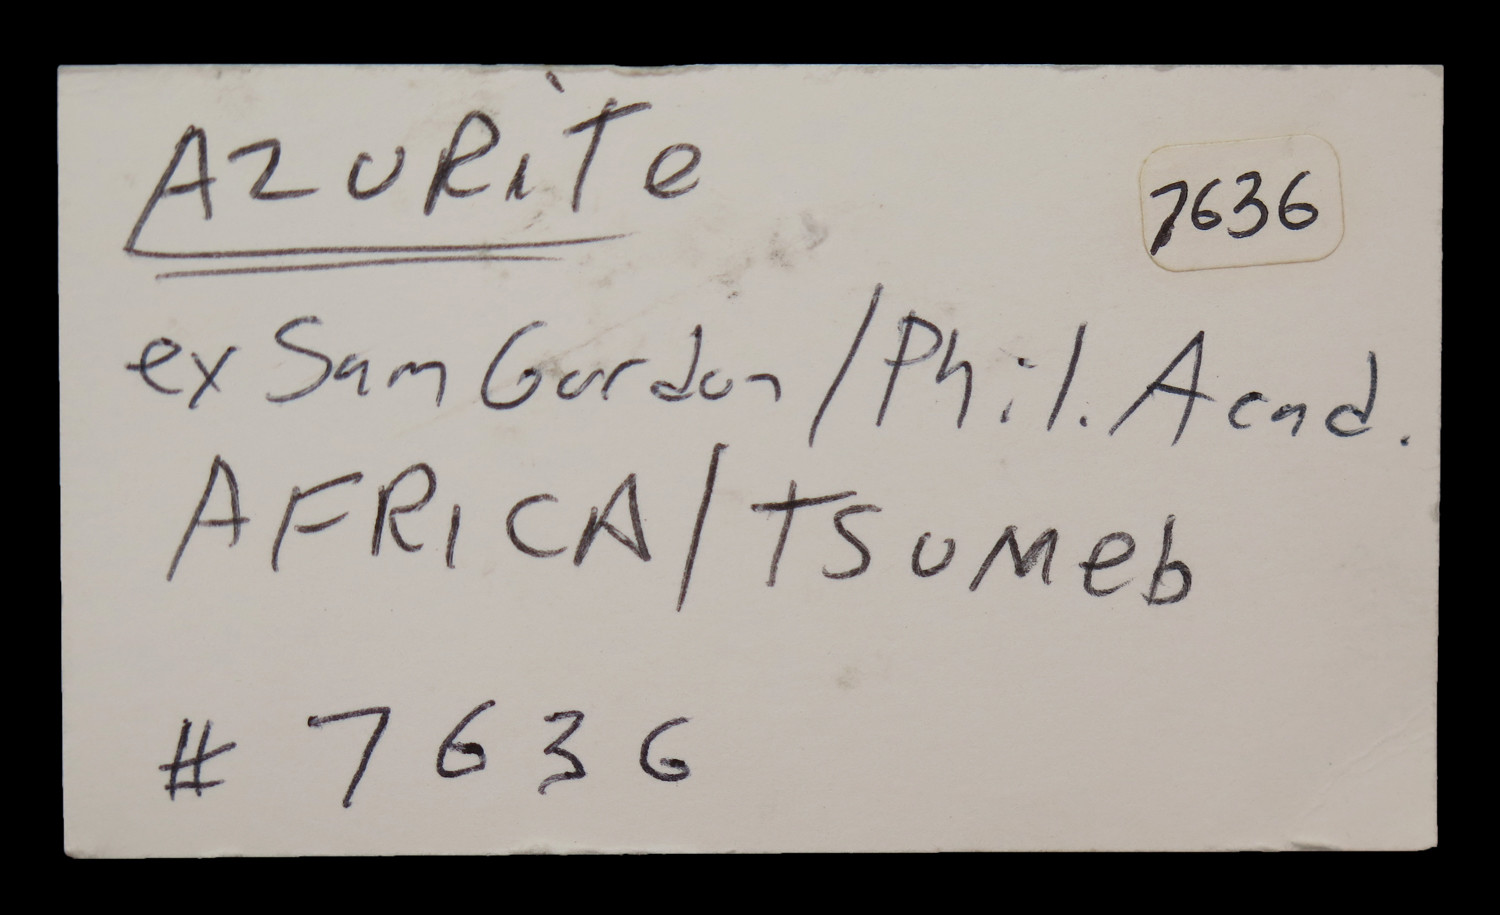 AZURiTe
7636
ex Sam Gordon/Phil. Acad.
AFRICA/TSUMeb
# 7636